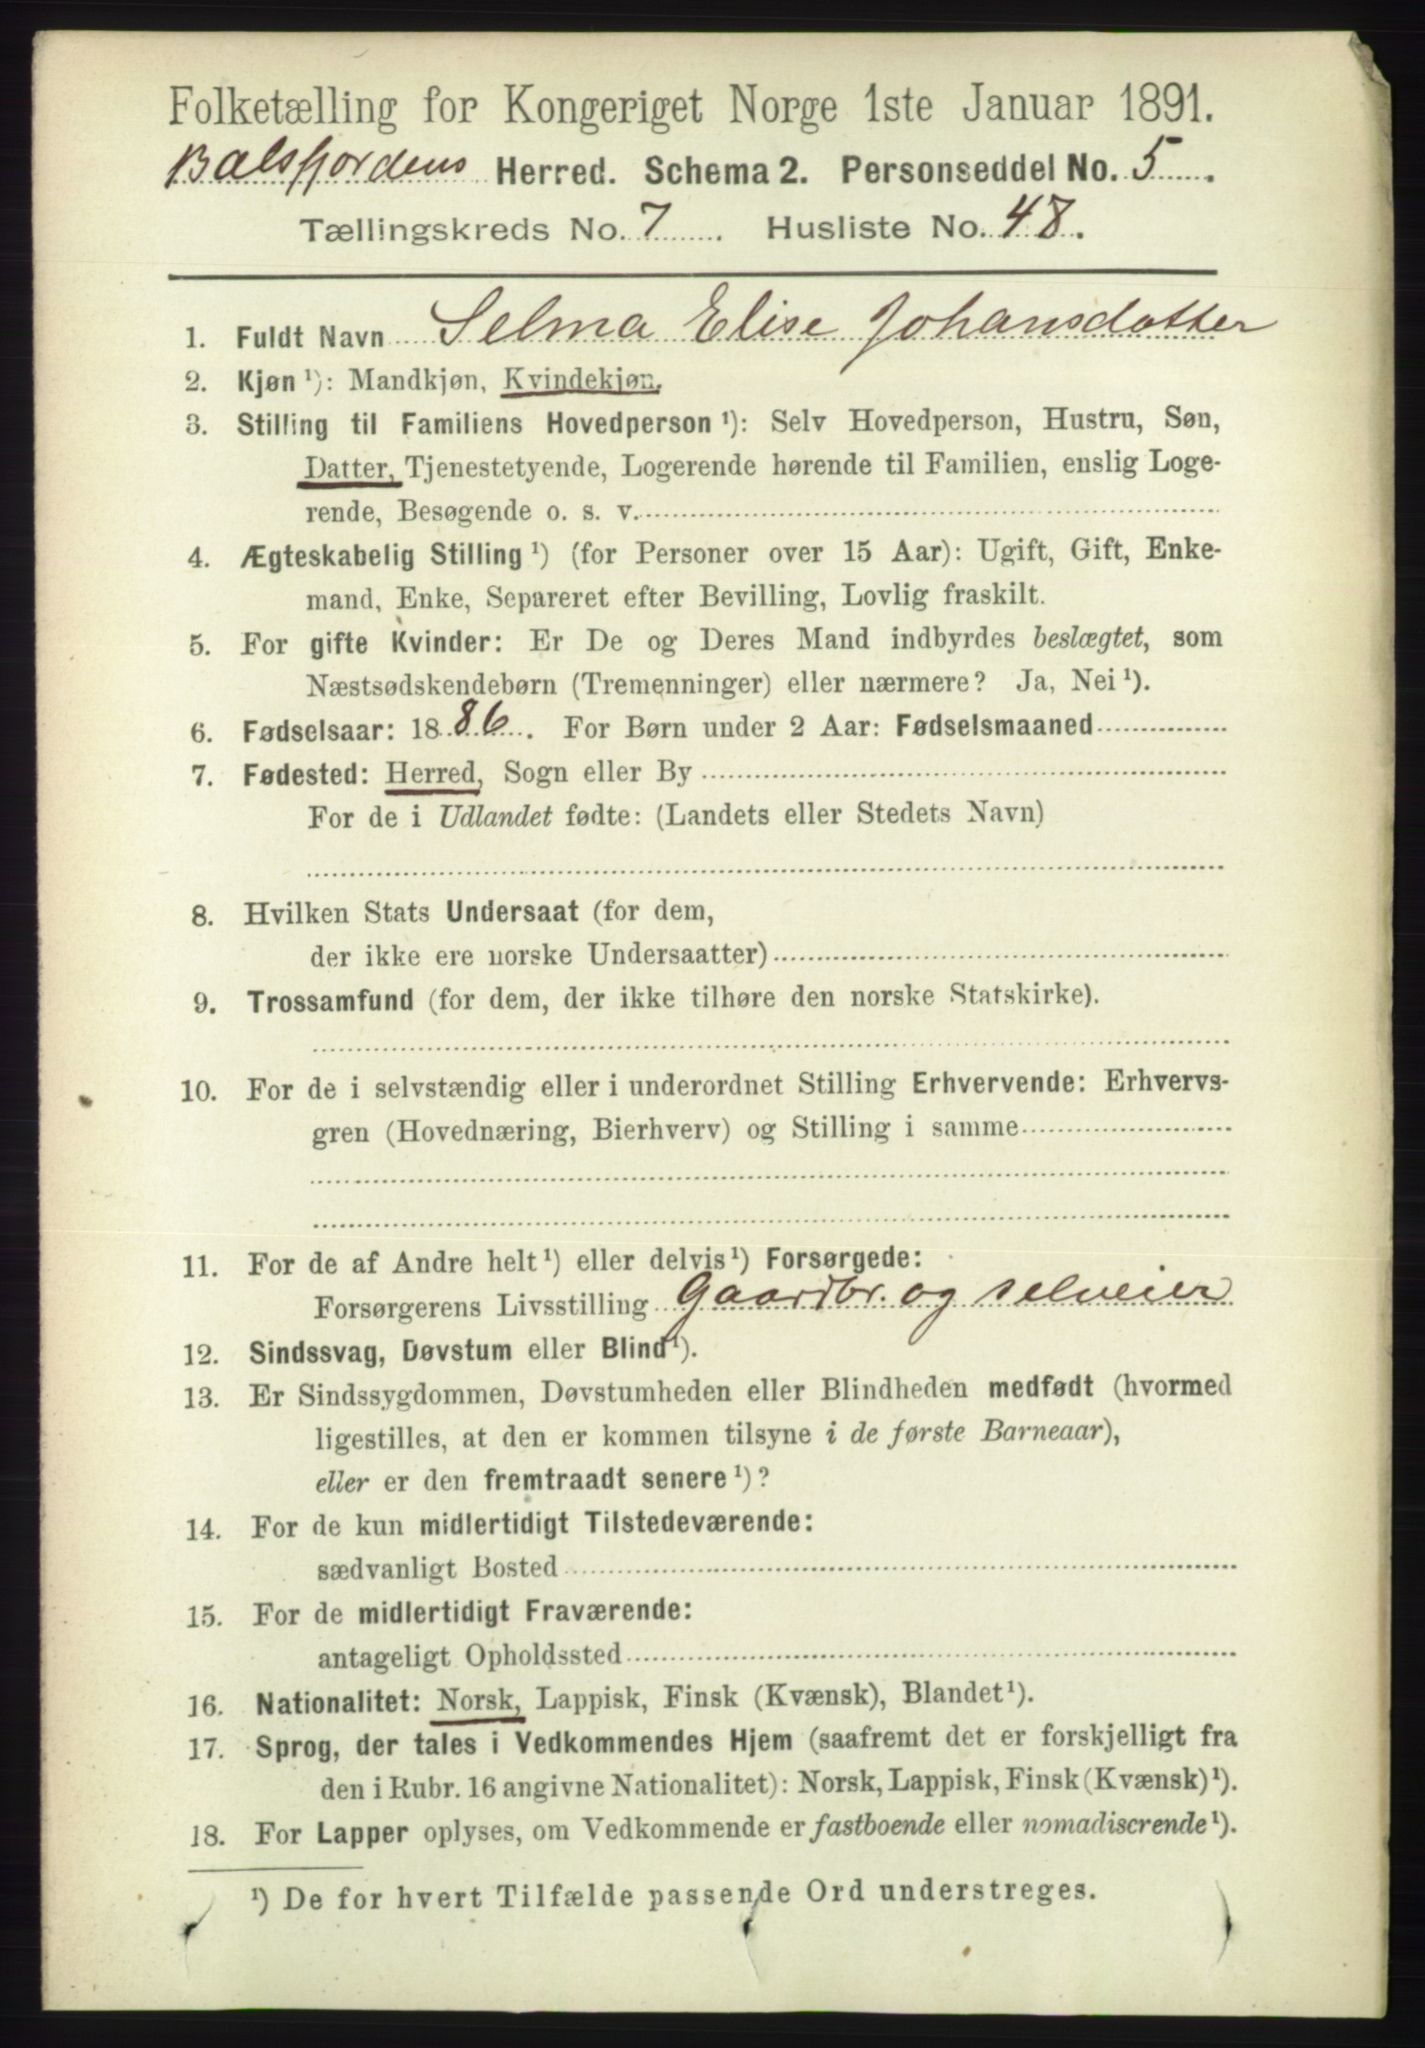 Folketælling for Kongeriget Norge 1ste Januar 1891.
Balsfjordens Herred. Schema 2. Personseddel No. 5.
Tællingskreds No. 7. Husliste No. 48.
1. Fuldt Navn Selma Elise Johansdatter
2. Kjøn ¹): Mandkjøn, Kvindekjøn.
3. Stilling til Familiens Hovedperson ¹): Selv Hovedperson, Hustru, Søn,
Datter, Tjenestetyende, Logerende hørende til Familien, enslig Loge-
rende, Besøgende o. s. v.
4. Ægteskabelig Stilling ¹) (for Personer over 15 Aar): Ugift, Gift, Enke-
mand, Enke, Separeret efter Bevilling, Lovlig fraskilt.
5. For gifte Kvinder: Er De og Deres Mand indbyrdes beslægtet, som
Næstsødskendebørn (Tremenninger) eller nærmere? Ja, Nei ¹).
6. Fødselsaar: 1886. For Børn under 2 Aar: Fødselsmaaned
7. Fødested: Herred, Sogn eller By
For de i Udlandet fødte: (Landets eller Stedets Navn)
8. Hvilken Stats Undersaat (for dem,
der ikke ere norske Undersaatter)
9. Trossamfund (for dem, der ikke tilhøre den norske Statskirke).
10. For de i selvstændig eller i underordnet Stilling Erhvervende: Erhvervs-
gren (Hovednæring, Bierhverv) og Stilling i samme
11. For de af Andre helt ¹) eller delvis ¹) Forsørgede:
Forsørgerens Livsstilling Gaardbr. og selveier
12. Sindssvag, Døvstum eller Blind ¹).
13. Er Sindssygdommen, Døvstumheden eller Blindheden medfødt (hvormed
ligestilles, at den er kommen tilsyne i de første Barneaar),
eller er den fremtraadt senere ¹)?
14. For de kun midlertidigt Tilstedeværende:
sædvanligt Bosted
15. For de midlertidigt Fraværende:
antageligt Opholdssted
16. Nationalitet: Norsk, Lappisk, Finsk (Kvænsk), Blandet ¹).
17. Sprog, der tales i Vedkommendes Hjem (saafremt det er forskjelligt fra
den i Rubr. 16 angivne Nationalitet): Norsk, Lappisk, Finsk (Kvænsk) ¹).
18. For Lapper oplyses, om Vedkommende er fastboende eller nomadiserende ¹).
¹) De for hvert Tilfælde passende Ord understreges.